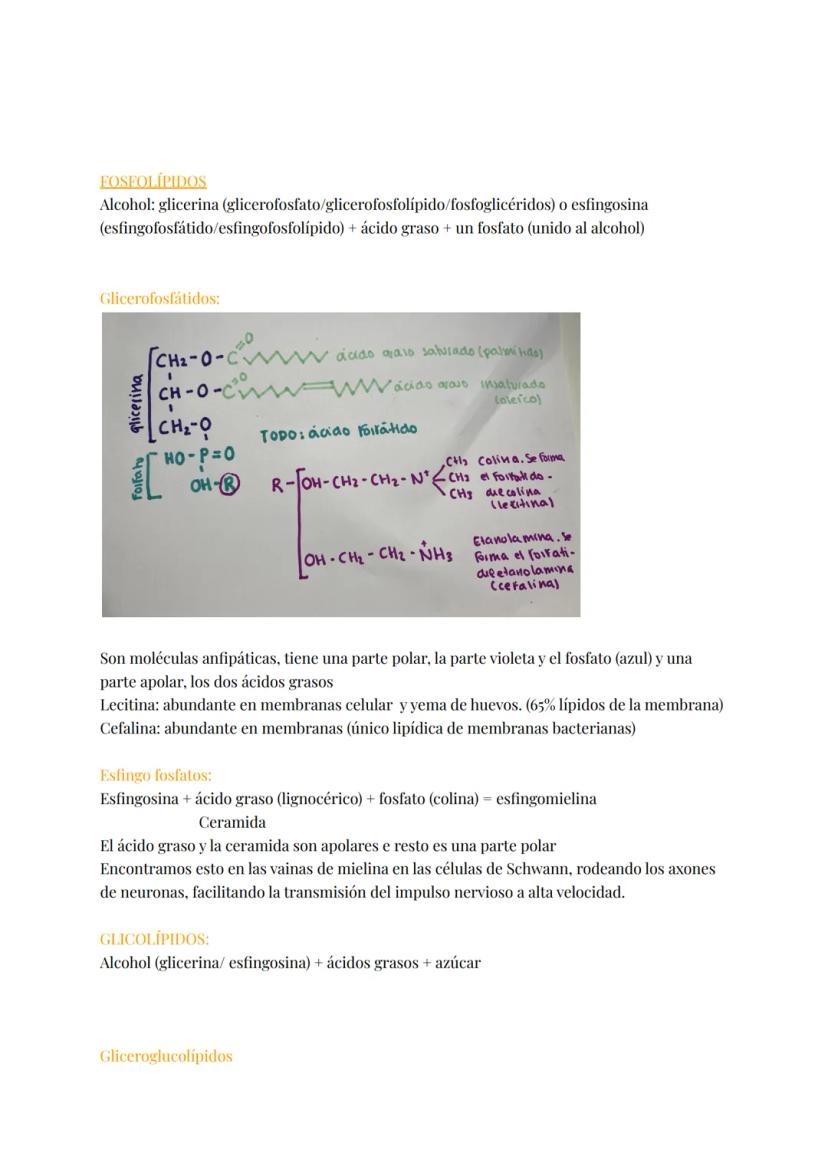 FOSFOLÍPIDOS
Alcohol: glicerina (glicerofosfato/glicerofosfolípido/fosfoglicéridos) o esfingosina
(esfingofosfátido/esfingofosfolípido) + ácido graso + un fosfato (unido al alcohol)
Glicerofosfátidos:
glicerina
CH2-O-C=O ácido graso saturado (palmítido)
CH-O-C=O ácido graso insaturado
(oleico)
CH2-O
TODO: ácido fosfátido
fosfato
HO-P=O
OH-R
R-[OH-CH2-CH2-N+
CH3 Colina. Se forma
CH3 el fosfatido-
CH3 due colina
(lecitina)
OH-CH2-CH2-NH3 +
Etanolamina. Se
forma el fosfati-
due etanolamina
(cefalina)
Son moléculas anfipáticas, tiene una parte polar, la parte violeta y el fosfato (azul) y una
parte apolar, los dos ácidos grasos
Lecitina: abundante en membranas celular y yema de huevos. (65% lípidos de la membrana)
Cefalina: abundante en membranas (único lipídica de membranas bacterianas)
Esfingo fosfatos:
Esfingosina + ácido graso (lignocérico) + fosfato (colina) = esfingomielina
Ceramida
El ácido graso y la ceramida son apolares e resto es una parte polar
Encontramos esto en las vainas de mielina en las células de Schwann, rodeando los axones
de neuronas, facilitando la transmisión del impulso nervioso a alta velocidad.
GLICOLÍPIDOS:
Alcohol (glicerina/ esfingosina) + ácidos grasos + azúcar
Gliceroglucolípidos